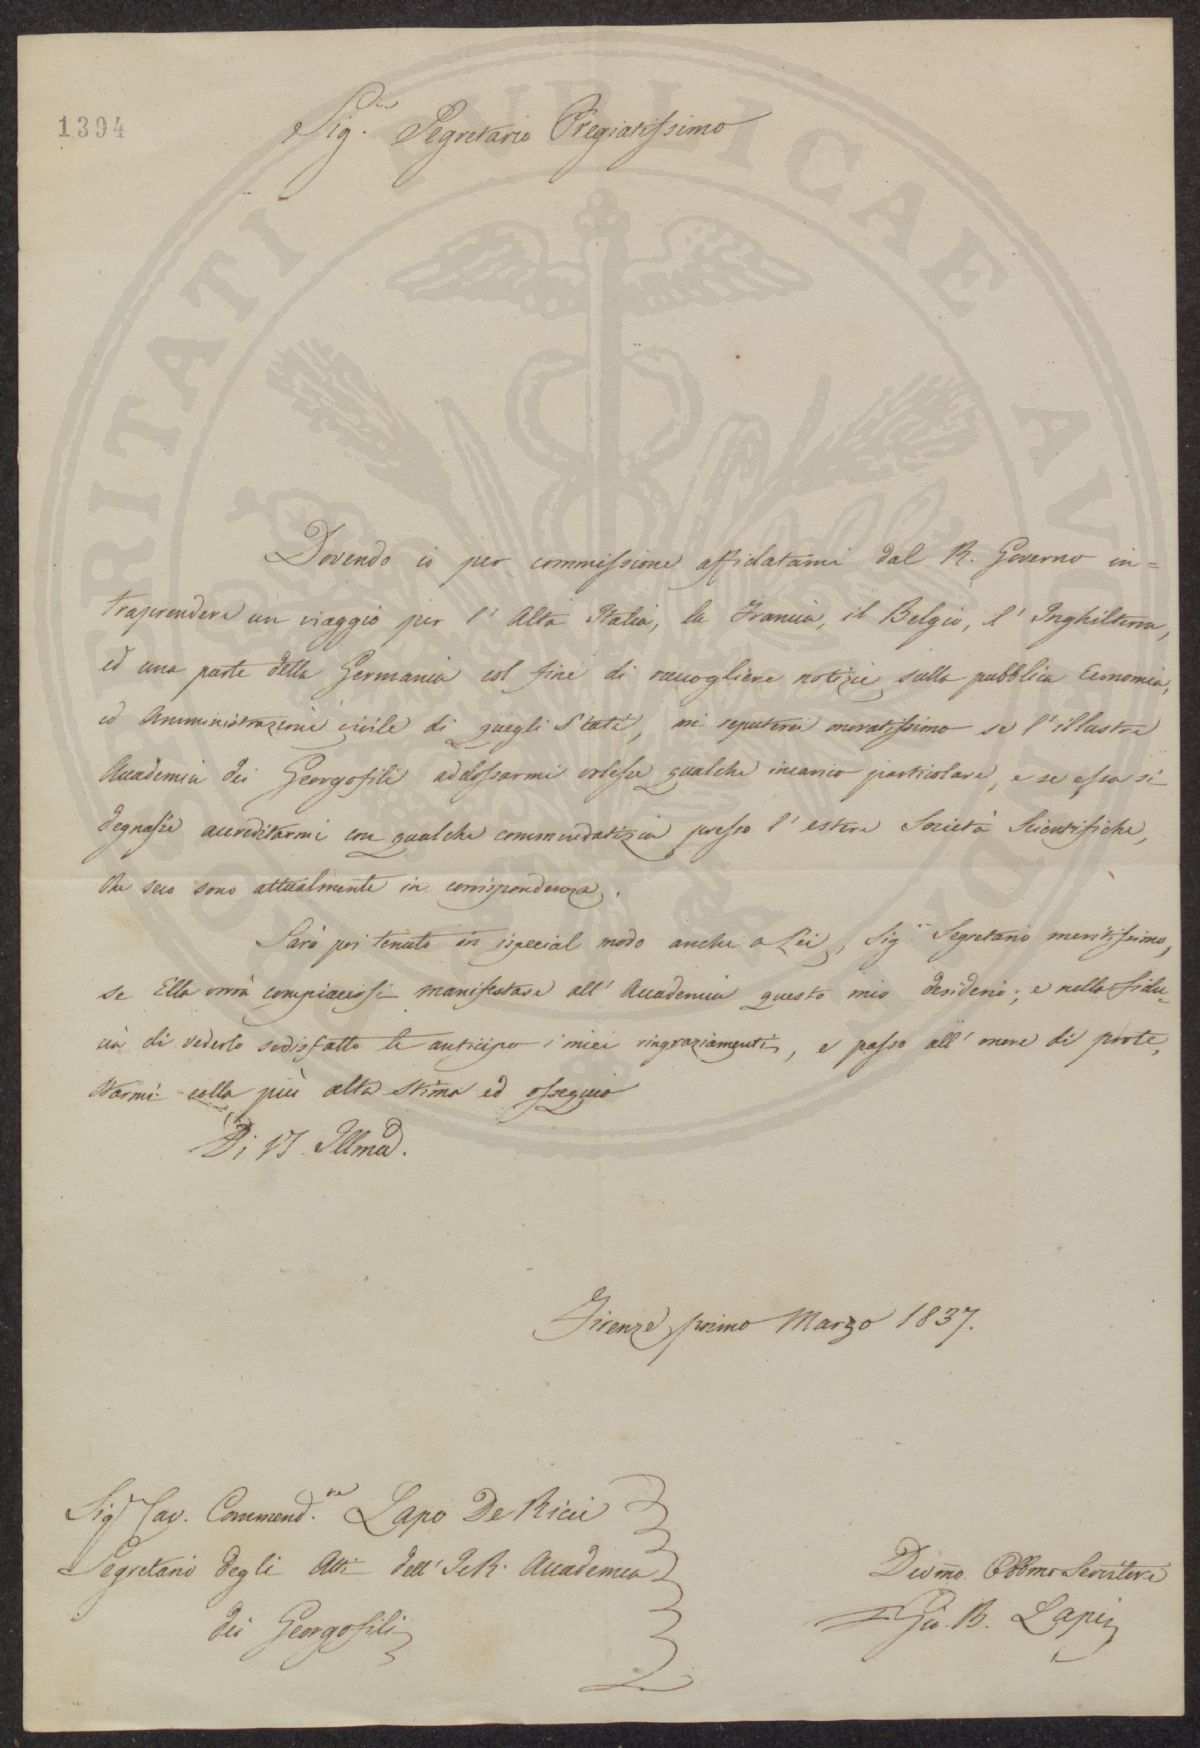 1394
Sig.re Segretario Pregiatissimo
Dovendo io per commissione affidatami dal R. Governo in=
traprendere un viaggio per l'Alta Italia, la Francia, il Belgio, l'Inghilterra,
ed una parte della Germania col fine di raccogliere notizie sulla pubblica Economia,
ed Amministrazione civile di quegli Stati, mi reputerei onoratissimo se l'illustre
Accademia dei Georgofili addossarmi volesse qualche incarico particolare, e se essa si
degnasse accreditarmi con qualche commendatizia presso l'estere Società Scientifiche,
che seco sono attualmente in corrispondenza.
Sarò poi tenuto in ispecial modo anche a Lei, Sig.re Segretario meritissimo,
se Ella vorrà compiacersi manifestare all'Accademia questo mio desiderio; e nella fidu-
cia di vederlo sodisfatto le anticipo i miei ringraziamenti, e passo all'onore di prote-
starmi colla più alta stima ed ossequio
Di VS. Illma.
Firenze primo Marzo 1837.
Sig.r Cav. Commend.re Lapo De Ricci
Segretario degli Atti dell'I. e R. Accademia
dei Georgofili
Devmo. Obbmo Servitore
Gio. B. Lapi